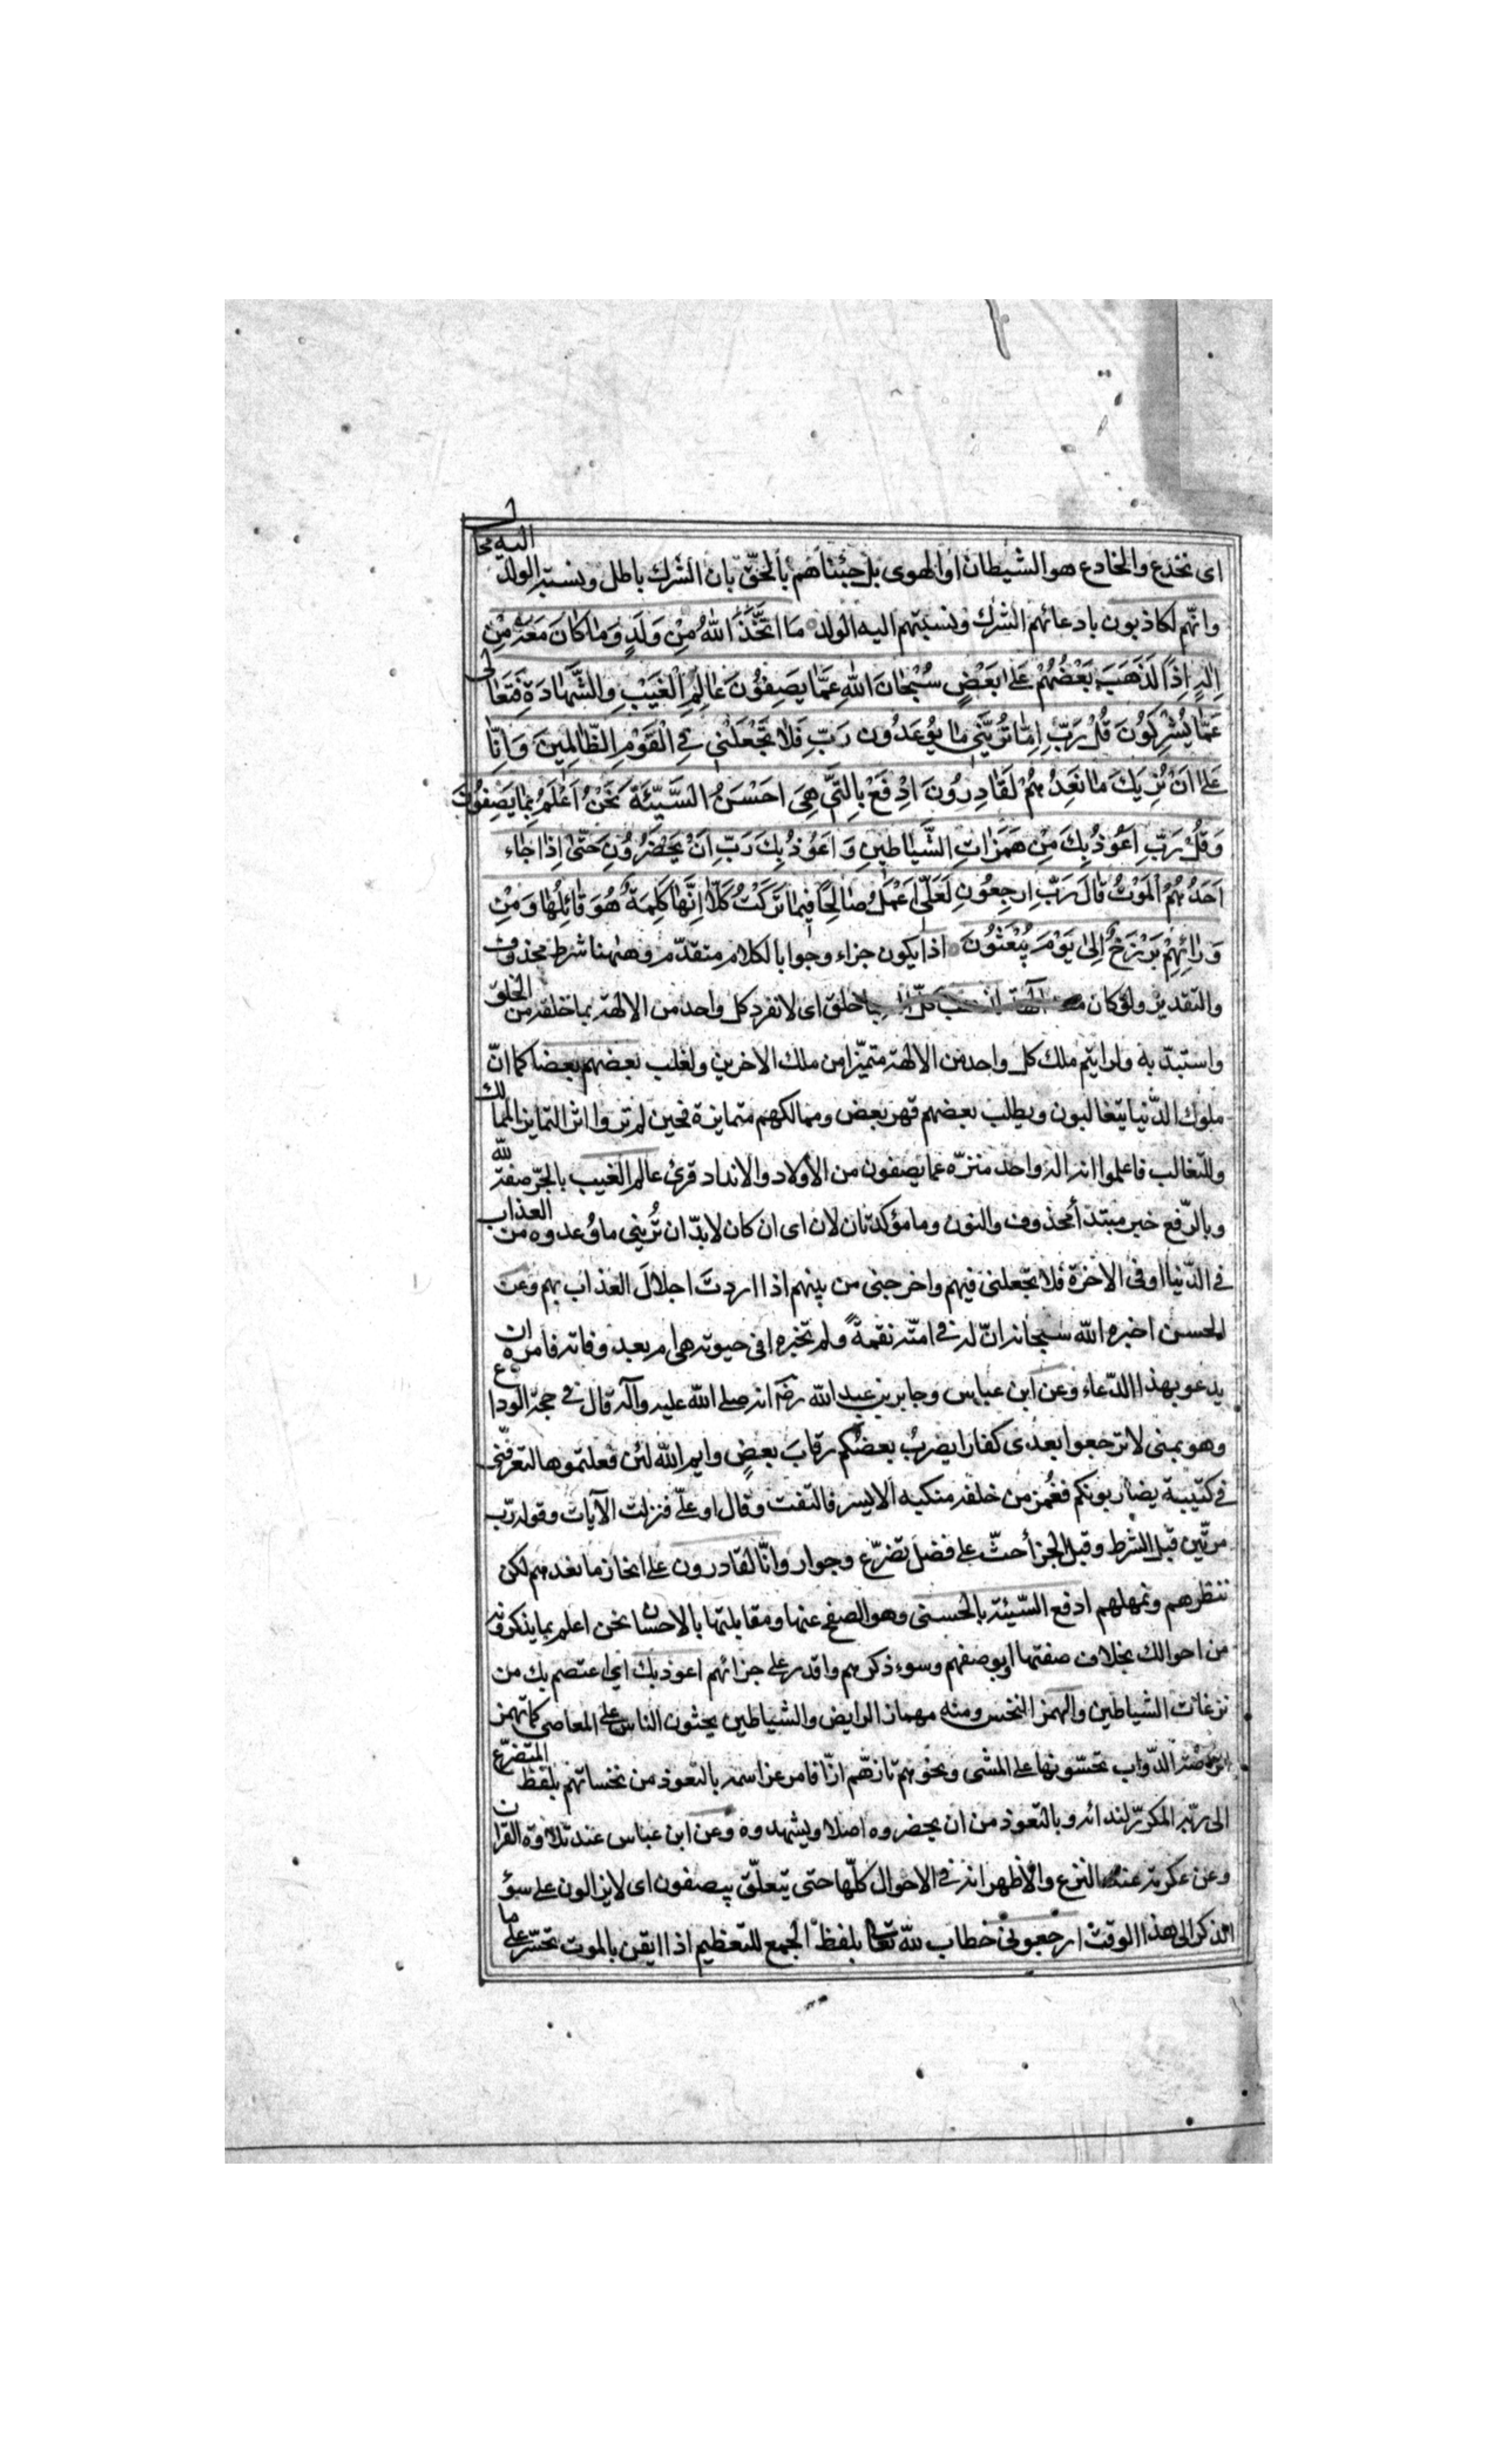 اى تخدع والخادع هو الشيطان او الهوى بل جئناهم بالحقّ بان الشرك باطل ونسبة الولد اليه محا
وانّهم لكاذبون بادعائهم الشرك ونسبتهم اليه الولد مَا اتَّخَذَ اللهُ مِنْ وَلَدٍ وَمَا كَانَ مَعَهُ مِنْ
اِلٰهٍ اِذًا لَذَهَبَ بَعْضُهُمْ عَلٰى بَعْضٍ سُبْحَانَ اللهِ عَمَّا يَصِفُونَ عَالِمِ الْغَيْبِ وَالشَّهَادَةِ فَتَعَالٰى
عَمَّا يُشْرِكُونَ قُلْ رَبِّ اِمَّا تُرِيَنِّي مَا يُوعَدُونَ رَبِّ فَلَا تَجْعَلْنِي فِي الْقَوْمِ الظَّالِمِينَ وَاِنَّا
عَلٰى اَنْ نُرِيَكَ مَا نَعِدُهُمْ لَقَادِرُونَ اِدْفَعْ بِالَّتِي هِيَ اَحْسَنُ السَّيِّئَةَ نَحْنُ اَعْلَمُ بِمَا يَصِفُونَ
وَقُلْ رَبِّ اَعُوذُ بِكَ مِنْ هَمَزَاتِ الشَّيَاطِينِ وَاَعُوذُ بِكَ رَبِّ اَنْ يَحْضُرُونِ حَتّٰى اِذَا جَاءَ
اَحَدَهُمُ الْمَوْتُ قَالَ رَبِّ ارْجِعُونِ لَعَلِّي اَعْمَلُ صَالِحًا فِيمَا تَرَكْتُ كَلَّا اِنَّهَا كَلِمَةٌ هُوَ قَائِلُهَا وَمِنْ
وَرَائِهِمْ بَرْزَخٌ اِلٰى يَوْمِ يُبْعَثُونَ اذا يكون جزاء وجوابا لكلام متقدّم وههنا شرط محذوف
والتقدير ولو كان خلق اى لانفرد كل واحد من الالهة بما خلقه من الخلق
واستبدّ به ولرايتم ملك كل واحد من الالهة متميّزا من ملك الاخرين ولغلب بعضهم بعضا كما انّ
ملوك الدّنيا يتغالبون ويطلب بعضهم قهر بعض وممالكهم متمايزة فحين لم تروا اثر التمايز الممالك
وللتغالب فاعلموا انه اله واحد منزّه عما يصفون من الأولاد والانداد قرئ عالم الغيب بالجرّ صفة لله
وبالرّفع خبر مبتدأ محذوف والنون وما مؤكدتان لان اى ان كان لابدّ ان تُريني ما وُعدوه من العذاب
في الدّنيا او في الاخرة فلا تجعلنى فيهم واخرجنى من بينهم اذا اردتَ احلالَ العذاب بهم وعن
الحسن اخبره الله سبحانه انّ له في امّته نقمةً ولم تخبره افى حيوته هى ام بعد وفاته فامره ان
يدعو بهذا الدّعاء وعن ابن عباس وجابر بن عبد الله رض انه صلى الله عليه وآله قال في حجة الوداع
وهو بمنى لا ترجعوا بعدى كفارا يضربُ بعضكم رقابَ بعضٍ وايم الله لئن فعلتموها لتعرفنّنى
في كتيبة يضاربونكم فغُمز من خلفه منكبه الايسر فالتفت وقال او علىّ فنزلت الآيات وقوله ربّ
مرّتين قبل الشرط وقبل الجزاء حثّ على فضل تضرّع وجوار وانّا لقادرون على انجاز ما نعدهم لكن
ننظرهم ونمهلهم ادفع السّيئة بالحسنى وهو الصفح عنها ومقابلتها بالاحسان نحن اعلم بما يذكرونه
من احوالك بخلاف صفتها او بوصفهم وسوء ذكرهم واقدر على جزائهم اعوذ بك اى اعتصم بك من
نزغات الشياطين والهمز النخس ومنه مهماز الرايض والشياطين يحثون الناس على المعاصى كما تهمز
الرّاضة الدّواب تحثّونها على المشى ونحو هم تازهّم ازّا فامر عز اسمه بالتعوذ من نخساتهم بلفظ المتضرّع
الى ربّه المكرّر لندائه وبالتعوذ من ان يحضروه اصلا ويشهدوه وعن ابن عباس عند تلاوة القرآن
وعن عكرمة عند النزع والأظهر انه في الاحوال كلّها حتى يتعلّق بيصفون اى لايزالون على سؤ
الذكر الى هذا الوقت ارجعونى خطاب لله تعا بلفظ الجمع للتعظيم اذا ايقن بالموت تحسّر على ما